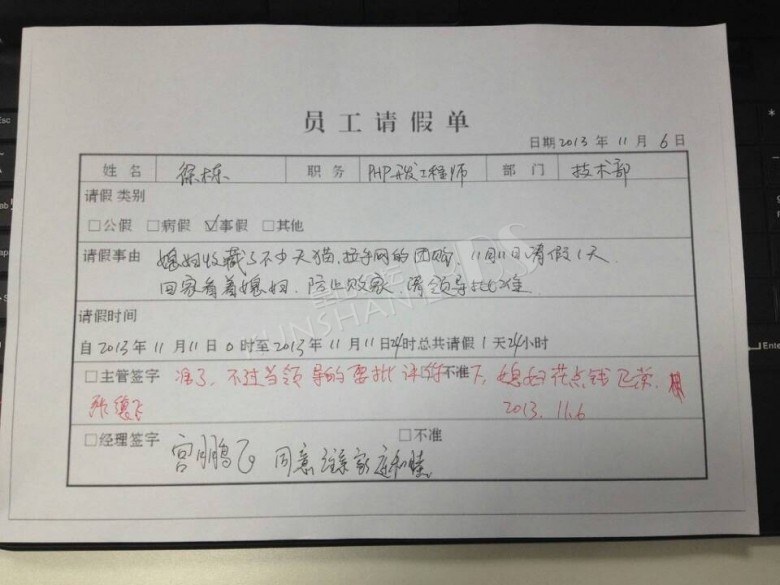 员工请假单
日期 2013 年 11 月 6 日
姓名 徐栋 职务 PHP开发工程师 部门 技术部
请假类别
□公假 □病假 ☑事假 □其他
请假事由 媳妇收藏了不少天猫、拉手网的团购，11月11日请假1天
回家看着媳妇，防止败家，请领导批准
请假时间
自 2013 年 11 月 11 日 0 时至 2013 年 11 月 11 日 24 时总共请假 1 天 24 小时
□主管签字 准了，不过当领导的要批评你不准下，媳妇花点钱
张德飞 2013.11.6
□经理签字 □不准
宫鹏飞 同意 家庭和睦
KUNSHAN ADS